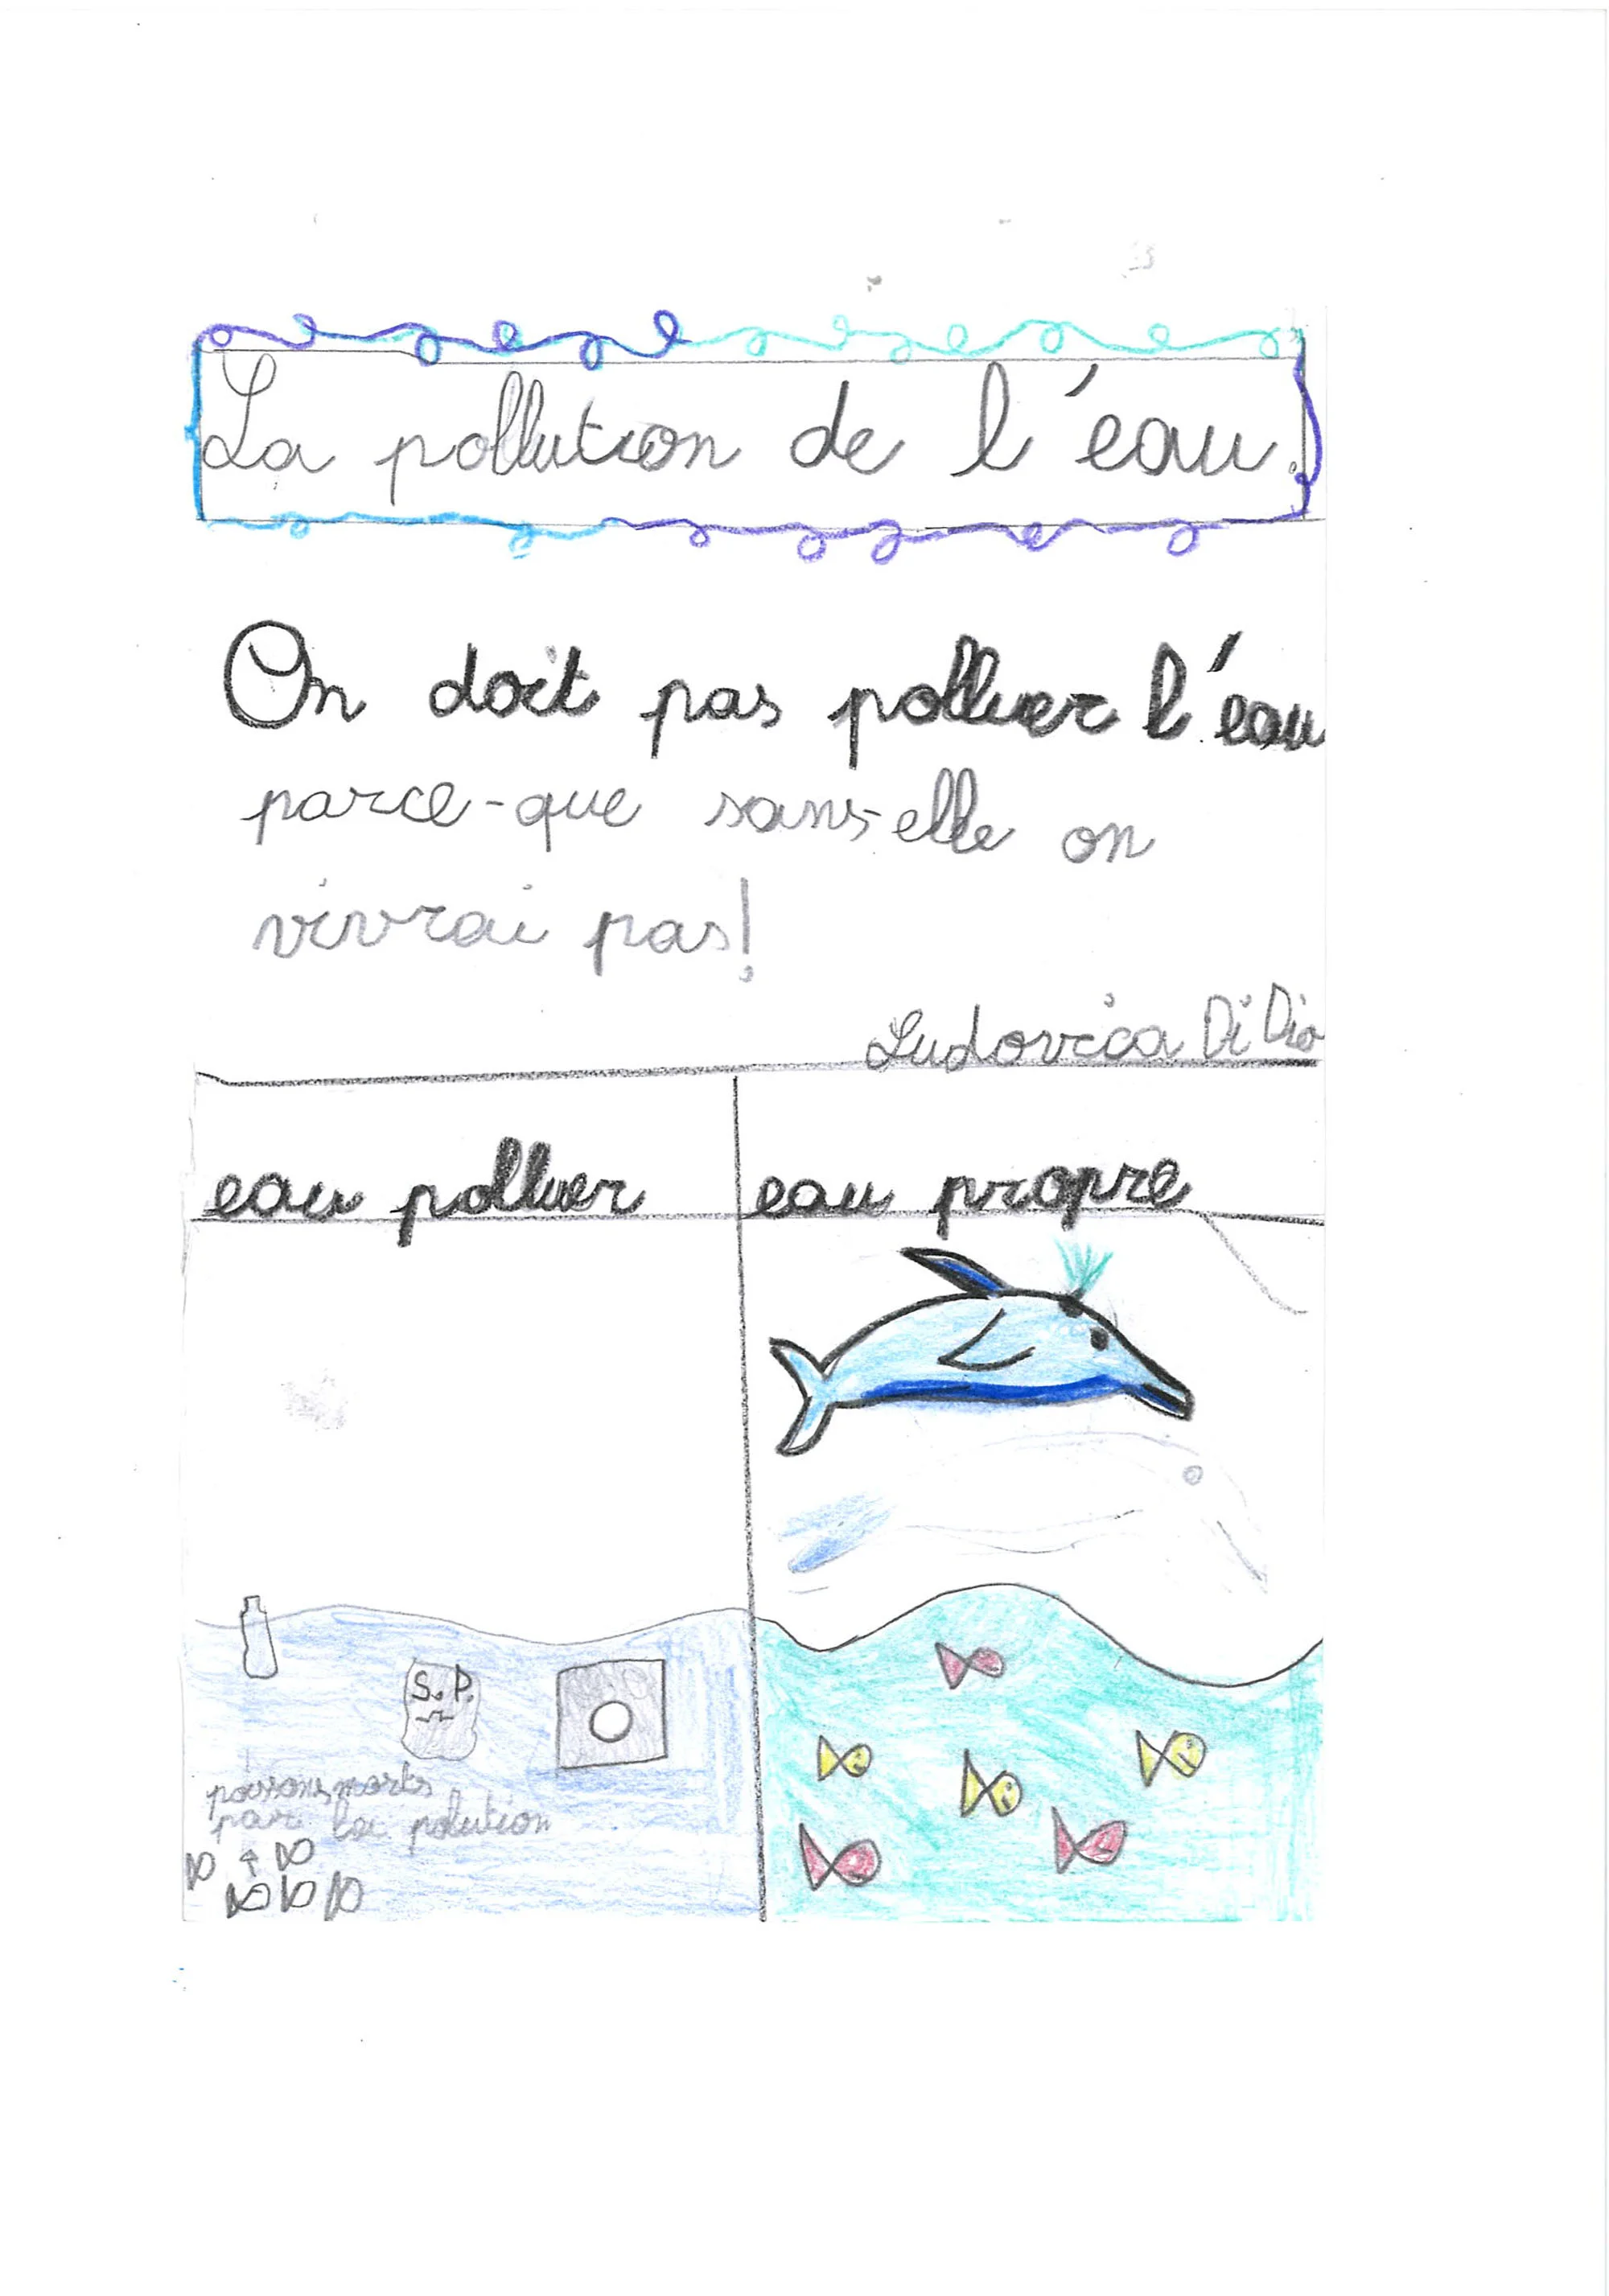 La pollution de l'eau.
On doit pas polluer l'eau
parce-que sans-elle on
vivrai pas!
Ludovica Di Dio
eau polluer
eau propre
S. P.
poissons morts
par la polution